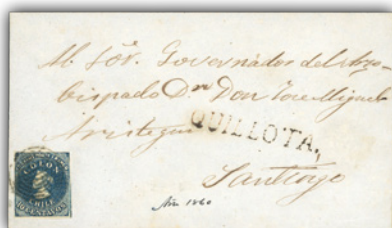 Al Sor. Governador del Arzo-
bispado Dn. Don Jose Miguel
Aristegui
QUILLOTA.
Santiago
COLON
CHILE
10 CENTAVOS
Año 1860